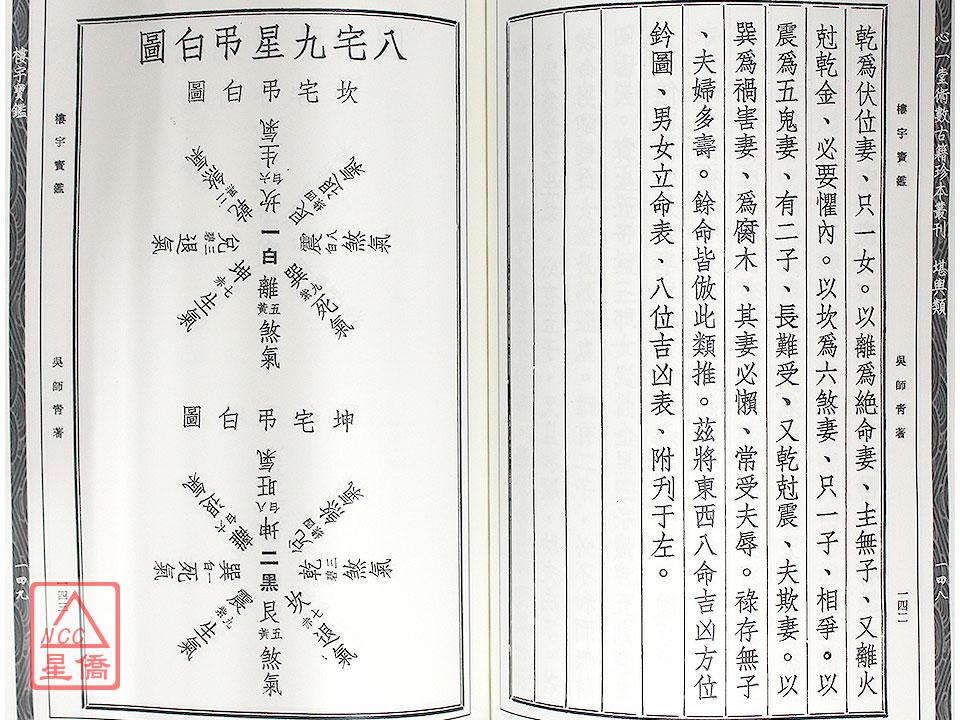 心一堂術數古籍珍本叢刊 堪輿類
一四八
樓宇寳鑑
吳師青著
一四二
乾爲伏位妻、只一女。以離爲絕命妻、主無子、又離火
尅乾金、必要懼內。以坎爲六煞妻、只一子、相爭。以
震爲五鬼妻、有二子、長難受、又乾尅震、夫欺妻。以
巽爲禍害妻、爲腐木、其妻必懶、常受夫辱。祿存無子
、夫婦多壽。餘命皆倣此類推。茲將東西八命吉凶方位
鈐圖、男女立命表、八位吉凶表、附刊于左。
八宅九星弔白圖
坎宅弔白圖
坎六白生氣
艮四綠退氣
震八白煞氣
巽九紫死氣
離五黃煞氣
坤七赤生氣
兌三碧退氣
乾二黑煞氣
一白
坤宅弔白圖
坤八白旺氣
兌四綠煞氣
乾三碧煞氣
坎七赤退氣
艮五黃煞氣
震九紫生氣
巽一白死氣
離六白退氣
二黑
樓宇寳鑑
吳師青著
一四三
樓宇寳鑑
一四九
NCC
星僑